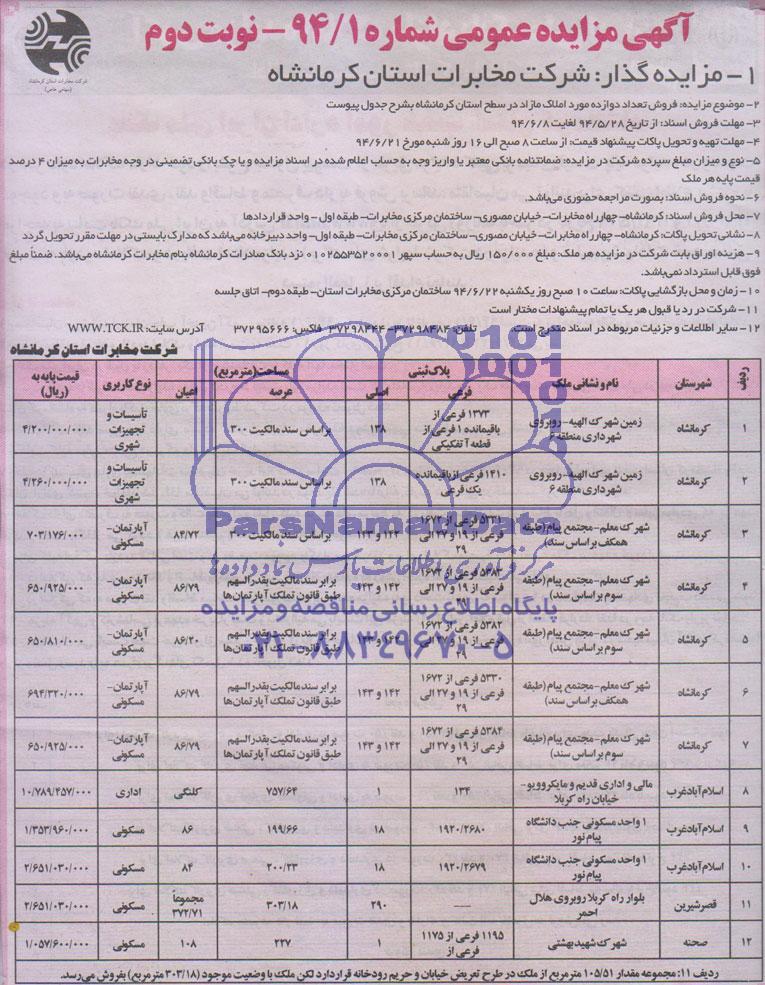 آگهی مزایده عمومی شماره ۹۴/۱ - نوبت دوم
شرکت مخابرات استان کرمانشاه
(سهامی خاص)
۱- مزایده گذار: شرکت مخابرات استان کرمانشاه
۲- موضوع مزایده: فروش تعداد دوازده مورد املاک مازاد در سطح استان کرمانشاه بشرح جدول پیوست
۳- مهلت فروش اسناد: از تاریخ ۹۴/۵/۲۸ لغایت ۹۴/۶/۸
۴- مهلت تهیه و تحویل پاکات پیشنهاد قیمت: از ساعت ۸ صبح الی ۱۶ روز شنبه مورخ ۹۴/۶/۲۱
۵- نوع و میزان مبلغ سپرده شرکت در مزایده: ضمانتنامه بانکی معتبر یا واریز وجه به حساب اعلام شده در اسناد مزایده و یا چک بانکی تضمینی در وجه مخابرات به میزان ۴ درصد
قیمت پایه هر ملک
۶- نحوه فروش اسناد: بصورت مراجعه حضوری می‌باشد.
۷- محل فروش اسناد: کرمانشاه- چهارراه مخابرات- خیابان مصوری- ساختمان مرکزی مخابرات- طبقه اول- واحد قراردادها
۸- نشانی تحویل پاکات: کرمانشاه- چهارراه مخابرات- خیابان مصوری- ساختمان مرکزی مخابرات- طبقه اول- واحد دبیرخانه می‌باشد که مدارک بایستی در مهلت مقرر تحویل گردد
۹- هزینه اوراق بابت شرکت در مزایده هر ملک: مبلغ ۱۵۰/۰۰۰ ریال به حساب سپهر ۰۱۰۲۵۵۳۵۲۰۰۰۱ نزد بانک صادرات کرمانشاه بنام مخابرات کرمانشاه می‌باشد. ضمناً مبلغ
فوق قابل استرداد نمی‌باشد.
۱۰- زمان و محل بازگشایی پاکات: ساعت ۱۰ صبح روز یکشنبه ۹۴/۶/۲۲ ساختمان مرکزی مخابرات استان- طبقه دوم- اتاق جلسه
۱۱- شرکت در رد یا قبول هر یک یا تمام پیشنهادات مختار است
۱۲- سایر اطلاعات و جزئیات مربوطه در اسناد مندرج است. تلفن: ۳۷۲۹۸۴۸۴-۳۷۲۹۸۴۴۴ فاکس: ۳۷۲۹۵۶۶۶ آدرس سایت: WWW.TCK.IR
شرکت مخابرات استان کرمانشاه
ردیف شهرستان نام و نشانی ملک پلاک ثبتی مساحت(مترمربع) نوع کاربری قیمت پایه به (ریال)
فرعی اصلی عرصه اعیان
۱ کرمانشاه زمین شهرک الهیه- روبروی شهرداری منطقه ۶ ۱۳۷۳ فرعی از باقیمانده ۱ فرعی از قطعه آ تفکیکی ۱۳۸ براساس سند مالکیت ۳۰۰ تأسیسات و تجهیزات شهری ۴/۲۰۰/۰۰۰/۰۰۰
۲ کرمانشاه زمین شهرک الهیه- روبروی شهرداری منطقه ۶ ۱۴۱۰ فرعی از باقیمانده یک فرعی ۱۳۸ براساس سند مالکیت ۳۰۰ تأسیسات و تجهیزات شهری ۴/۲۶۰/۰۰۰/۰۰۰
۳ کرمانشاه شهرک معلم- مجتمع پیام(طبقه همکف براساس سند) ۵۳۳۱ فرعی از ۱۶۷۲ فرعی از ۱۹ و ۲۷ الی ۲۹ ۱۴۲ و ۱۴۳ براساس سند مالکیت ۳۰۰ ۸۴/۷۲ آپارتمان- مسکونی ۷۰۳/۱۷۶/۰۰۰
۴ کرمانشاه شهرک معلم- مجتمع پیام(طبقه سوم براساس سند) ۵۳۸۳ فرعی از ۱۶۷۲ فرعی از ۱۹ و ۲۷ الی ۲۹ ۱۴۲ و ۱۴۳ برابر سند مالکیت بقدرالسهم طبق قانون تملک آپارتمان‌ها ۸۶/۷۹ آپارتمان- مسکونی ۶۵۰/۹۲۵/۰۰۰
۵ کرمانشاه شهرک معلم- مجتمع پیام(طبقه سوم براساس سند) ۵۳۸۲ فرعی از ۱۶۷۲ فرعی از ۱۹ و ۲۷ الی ۲۹ برابر سند مالکیت بقدرالسهم طبق قانون تملک آپارتمان‌ها ۸۶/۲۰ آپارتمان- مسکونی ۶۵۰/۸۱۰/۰۰۰
۶ کرمانشاه شهرک معلم- مجتمع پیام(طبقه همکف براساس سند) ۵۳۳۰ فرعی از ۱۶۷۲ فرعی از ۱۹ و ۲۷ الی ۲۹ ۱۴۲ و ۱۴۳ برابر سند مالکیت بقدرالسهم طبق قانون تملک آپارتمان‌ها ۸۶/۷۹ آپارتمان- مسکونی ۶۹۴/۳۲۰/۰۰۰
۷ کرمانشاه شهرک معلم- مجتمع پیام(طبقه سوم براساس سند) ۵۳۸۴ فرعی از ۱۶۷۲ فرعی از ۱۹ و ۲۷ الی ۲۹ ۱۴۲ و ۱۴۳ برابر سند مالکیت بقدرالسهم طبق قانون تملک آپارتمان‌ها ۸۶/۷۹ آپارتمان- مسکونی ۶۵۰/۹۲۵/۰۰۰
۸ اسلام‌آبادغرب مالی و اداری قدیم و مایکروویو- خیابان راه کربلا ۱۳۴ ۱ ۷۵۷/۶۴ کلنگی اداری ۱۰/۷۸۹/۴۵۷/۰۰۰
۹ اسلام‌آبادغرب ۱ واحد مسکونی جنب دانشگاه پیام نور ۱۹۲۰/۲۶۸۰ ۱۸ ۱۹۹/۶۶ ۸۶ مسکونی ۱/۳۵۳/۹۶۰/۰۰۰
۱۰ اسلام‌آبادغرب ۱ واحد مسکونی جنب دانشگاه پیام نور ۱۹۲۰/۲۶۷۹ ۱۸ ۲۰۰/۲۳ ۸۴ مسکونی ۲/۶۵۱/۰۳۰/۰۰۰
۱۱ قصرشیرین بلوار راه کربلا روبروی هلال احمر ---- ۲۹۰ ۳۰۳/۱۸ مجموعاً ۳۷۲/۷۱ مسکونی ۲/۶۵۱/۰۳۰/۰۰۰
۱۲ صحنه شهرک شهیدبهشتی ۱۱۹۵ فرعی از ۱۱۷۵ فرعی از ۱ ۲۲۷ ۱۰۸ مسکونی ۱/۰۵۷/۶۰۰/۰۰۰
ردیف ۱۱: مجموعه مقدار ۱۰۵/۵۱ مترمربع از ملک در طرح تعریض خیابان و حریم رودخانه قرار دارد لکن ملک با وضعیت موجود (۳۰۳/۱۸ مترمربع) بفروش می‌رسد.
ParsNamadData
مرکز فرآوری اطلاعات پارس نماد داده‌ها
پایگاه اطلاع رسانی مناقصه و مزایده
۰۲۱-۸۸۳۴۹۶۷۰-۵